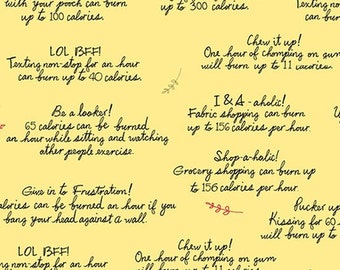 with your pooch can burn
up to 100 calories.
up to 300 calories.
LOL BFF!
Texting non-stop for an hour
can burn up to 40 calories.
Chew it up!
One hour of chomping on gum
will burn up to 11 calories.
Be a looker!
65 calories can be burned
an hour while sitting and watching
other people exercise.
I & A-aholic!
Fabric shopping can burn
up to 156 calories per hour.
Shop-a-holic!
Grocery shopping can burn up
to 156 calories per hour.
Give in to Frustration!
calories can be burned an hour if you
bang your head against a wall.
Pucker up
Kissing for 60
will burn up to
LOL BFF!
Texting non-stop for an hour
can burn up to 40 calories.
Chew it up!
One hour of chomping on gum
will burn up to 11 calories.